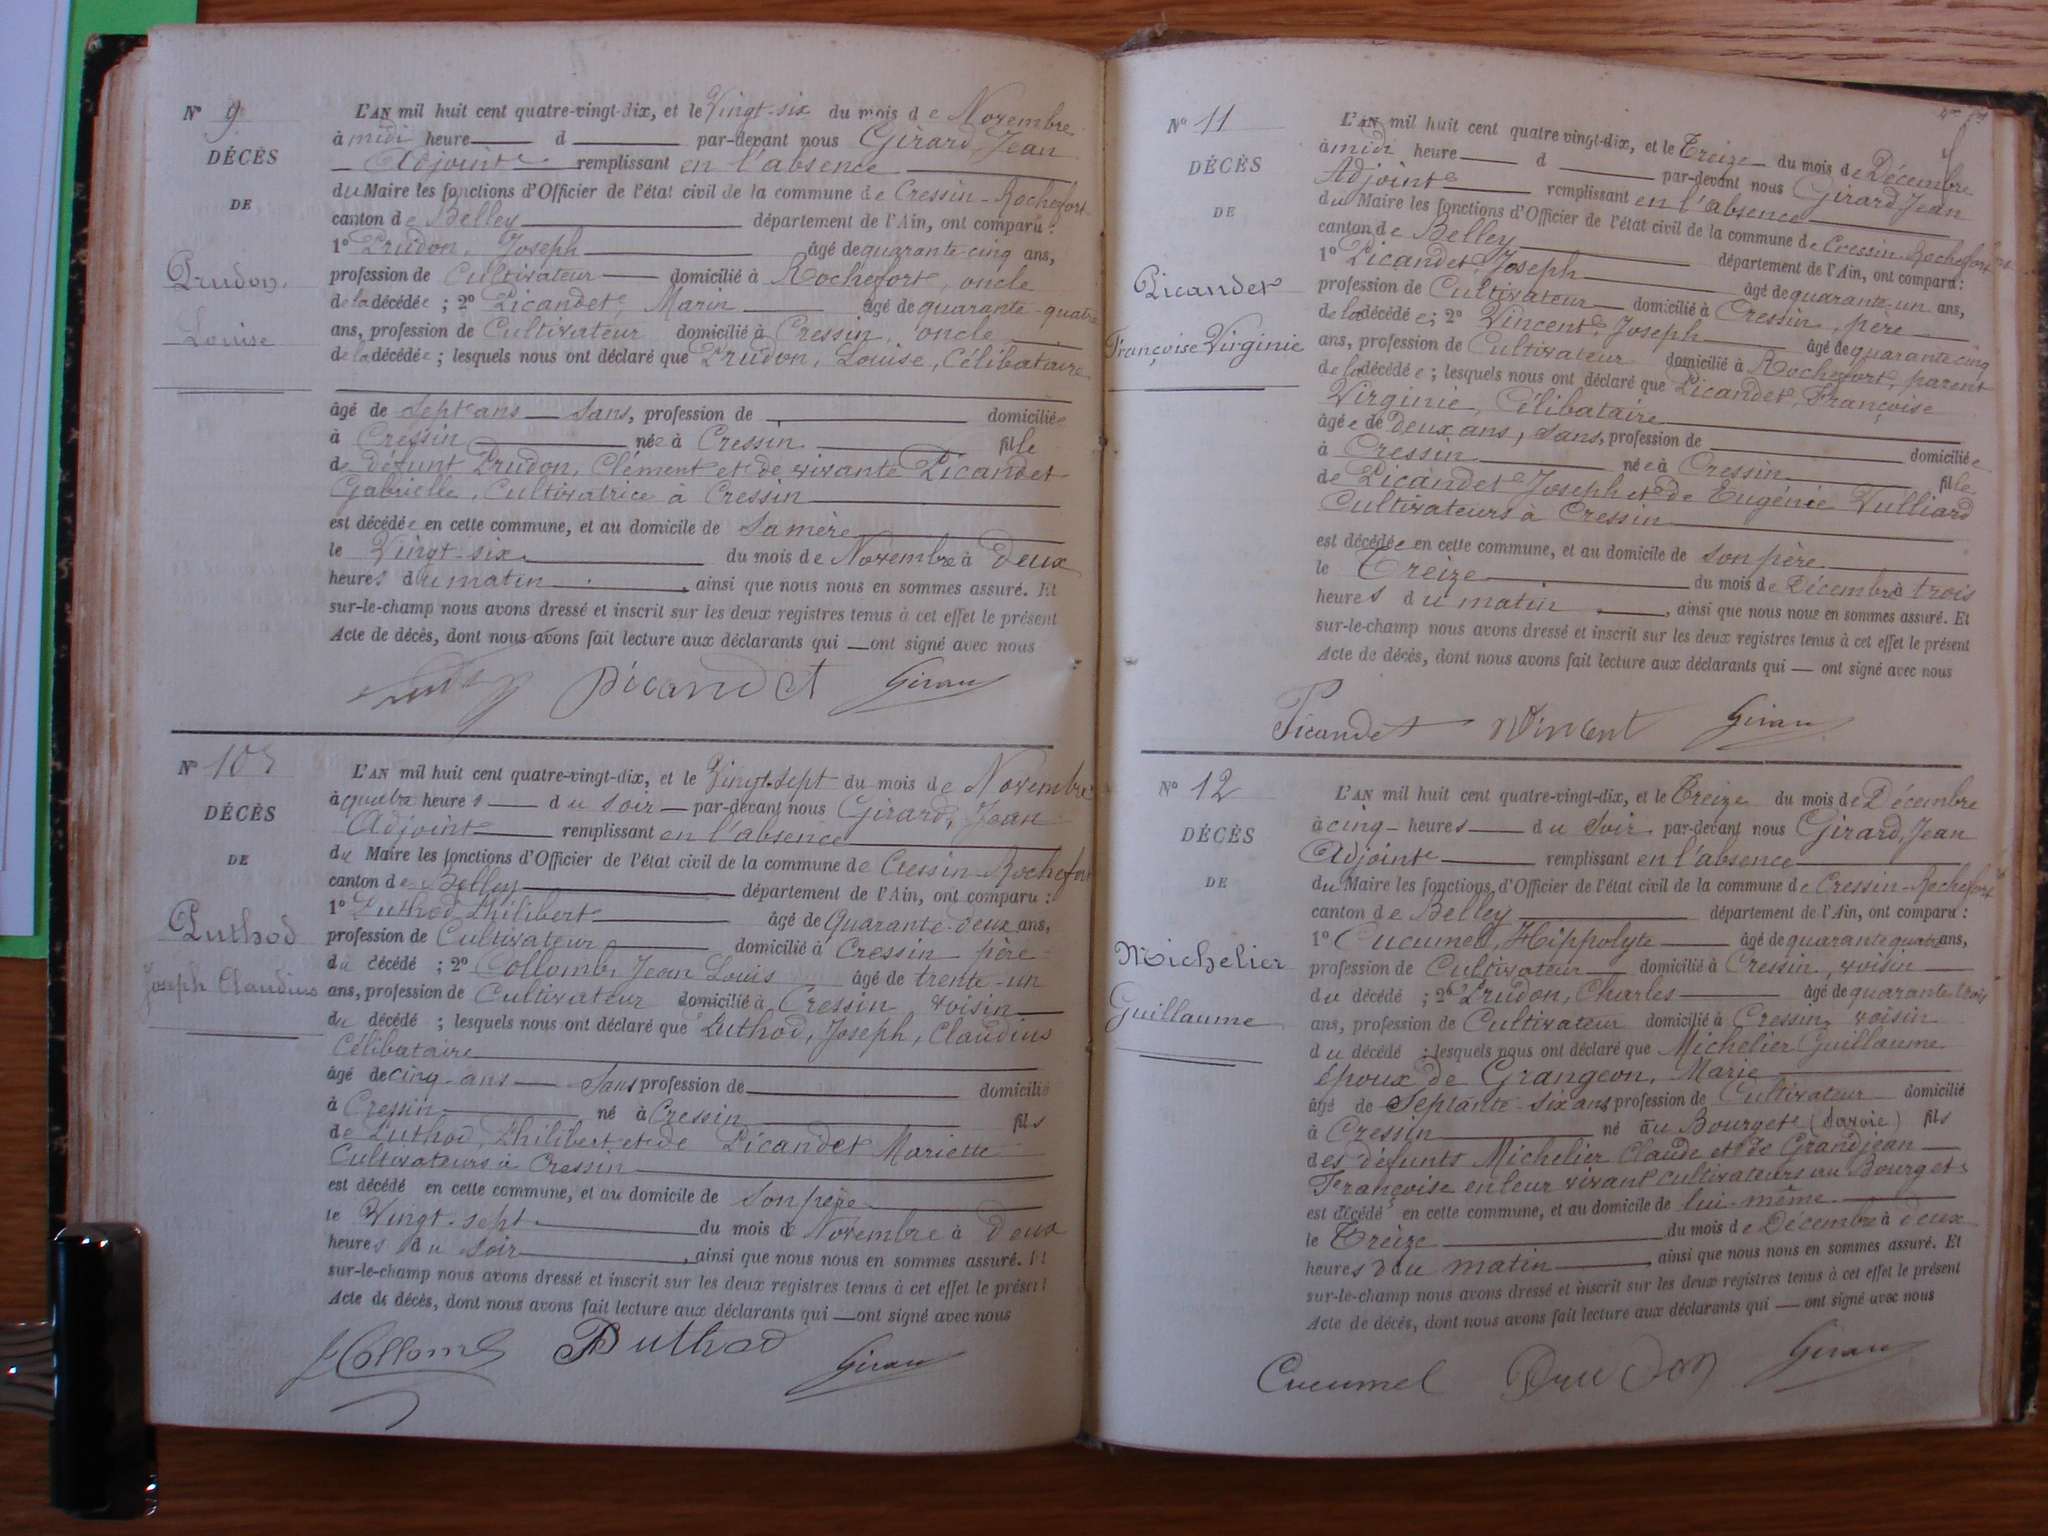 N° 9
DÉCÈS
DE
Prudon,
Louise
L'AN mil huit cent quatre-vingt-dix, et le Vingt-six du mois de Novembre
à midi heure d par-devant nous Girard, Jean
Adjoint remplissant en l'absence
du Maire les fonctions d'Officier de l'état civil de la commune de Cressin-Rochefort
canton de Belley département de l'Ain, ont comparu :
1° Prudon, Joseph âgé de quarante-cinq ans,
profession de Cultivateur domicilié à Rochefort, oncle
de la décédée ; 2° Picandet, Marin âgé de quarante-quatre
ans, profession de Cultivateur domicilié à Cressin, oncle
de la décédée ; lesquels nous ont déclaré que Prudon, Louise, Célibataire
âgé de Sept ans Sans, profession de domiciliée
à Cressin née à Cressin fille
de défunt Prudon, Clément et de vivante Picandet
Gabrielle, Cultivatrice à Cressin
est décédée en cette commune, et au domicile de Sa mère
le Vingt-six du mois de Novembre à Deux
heures du matin , ainsi que nous nous en sommes assuré. Et
sur-le-champ nous avons dressé et inscrit sur les deux registres tenus à cet effet le présent
Acte de décès, dont nous avons fait lecture aux déclarants qui ont signé avec nous
Picandet Girard
N° 10
DÉCÈS
DE
Puthod
Joseph Claudius
L'AN mil huit cent quatre-vingt-dix, et le Vingt-sept du mois de Novembre
à quatre heures du soir par-devant nous Girard, Jean
Adjoint remplissant en l'absence
du Maire les fonctions d'Officier de l'état civil de la commune de Cressin-Rochefort
canton de Belley département de l'Ain, ont comparu :
1° Puthod, Philibert âgé de Quarante-deux ans,
profession de Cultivateur domicilié à Cressin père
du décédé ; 2° Collomb, Jean Louis âgé de trente-un
ans, profession de Cultivateur domicilié à Cressin voisin
du décédé ; lesquels nous ont déclaré que Puthod, Joseph, Claudius
Célibataire
âgé de cinq ans Sans profession de domicilié
à Cressin né à Cressin fils
de Puthod, Philibert et de Picandet Mariette
Cultivateurs à Cressin
est décédé en cette commune, et au domicile de Son père
le Vingt-sept du mois de Novembre à Deux
heures du soir , ainsi que nous nous en sommes assuré. Et
sur-le-champ nous avons dressé et inscrit sur les deux registres tenus à cet effet le présent
Acte de décès, dont nous avons fait lecture aux déclarants qui ont signé avec nous
Collomb Puthod Girard
N° 11
DÉCÈS
DE
Picandet
Françoise Virginie
L'AN mil huit cent quatre vingt-dix, et le Treize du mois de Décembre
à midi heure d par-devant nous Girard, Jean
Adjoint remplissant en l'absence
du Maire les fonctions d'Officier de l'état civil de la commune de Cressin-Rochefort
canton de Belley département de l'Ain, ont comparu :
1° Picandet, Joseph âgé de quarante-un ans,
profession de Cultivateur domicilié à Cressin, père
de la décédée ; 2° Vincent, Joseph âgé de quarante cinq
ans, profession de Cultivateur domicilié à Rochefort, parent
de la décédée ; lesquels nous ont déclaré que Picandet, Françoise
Virginie, Célibataire
âgée de Deux ans, Sans, profession de domiciliée
à Cressin née à Cressin fille
de Picandet Joseph et de Eugénie Vulliard
Cultivateurs à Cressin
est décédée en cette commune, et au domicile de son père
le Treize du mois de Décembre à trois
heures du matin , ainsi que nous nous en sommes assuré. Et
sur-le-champ nous avons dressé et inscrit sur les deux registres tenus à cet effet le présent
Acte de décès, dont nous avons fait lecture aux déclarants qui ont signé avec nous
Picandet Vincent Girard
N° 12
DÉCÈS
DE
Michelier
Guillaume
L'AN mil huit cent quatre-vingt-dix, et le Treize du mois de Décembre
à cinq heures du Soir par-devant nous Girard, Jean
Adjoint remplissant en l'absence
du Maire les fonctions d'Officier de l'état civil de la commune de Cressin-Rochefort
canton de Belley département de l'Ain, ont comparu :
1° Cucumel, Hippolyte âgé de quarante quatre ans,
profession de Cultivateur domicilié à Cressin, voisin
du décédé ; 2° Prudon, Charles âgé de quarante trois
ans, profession de Cultivateur domicilié à Cressin, voisin
du décédé ; lesquels nous ont déclaré que Michelier Guillaume
époux de Grangeon, Marie
âgé de Septante-six ans, profession de Cultivateur domicilié
à Cressin né au Bourget (Savoie) fils
des défunts Michelier Claude et de Grandjean
Françoise en leur vivant cultivateurs au Bourget
est décédé en cette commune, et au domicile de lui-même
le Treize du mois de Décembre à deux
heures du matin , ainsi que nous nous en sommes assuré. Et
sur-le-champ nous avons dressé et inscrit sur les deux registres tenus à cet effet le présent
Acte de décès, dont nous avons fait lecture aux déclarants qui ont signé avec nous
Cucumel Prudon Girard